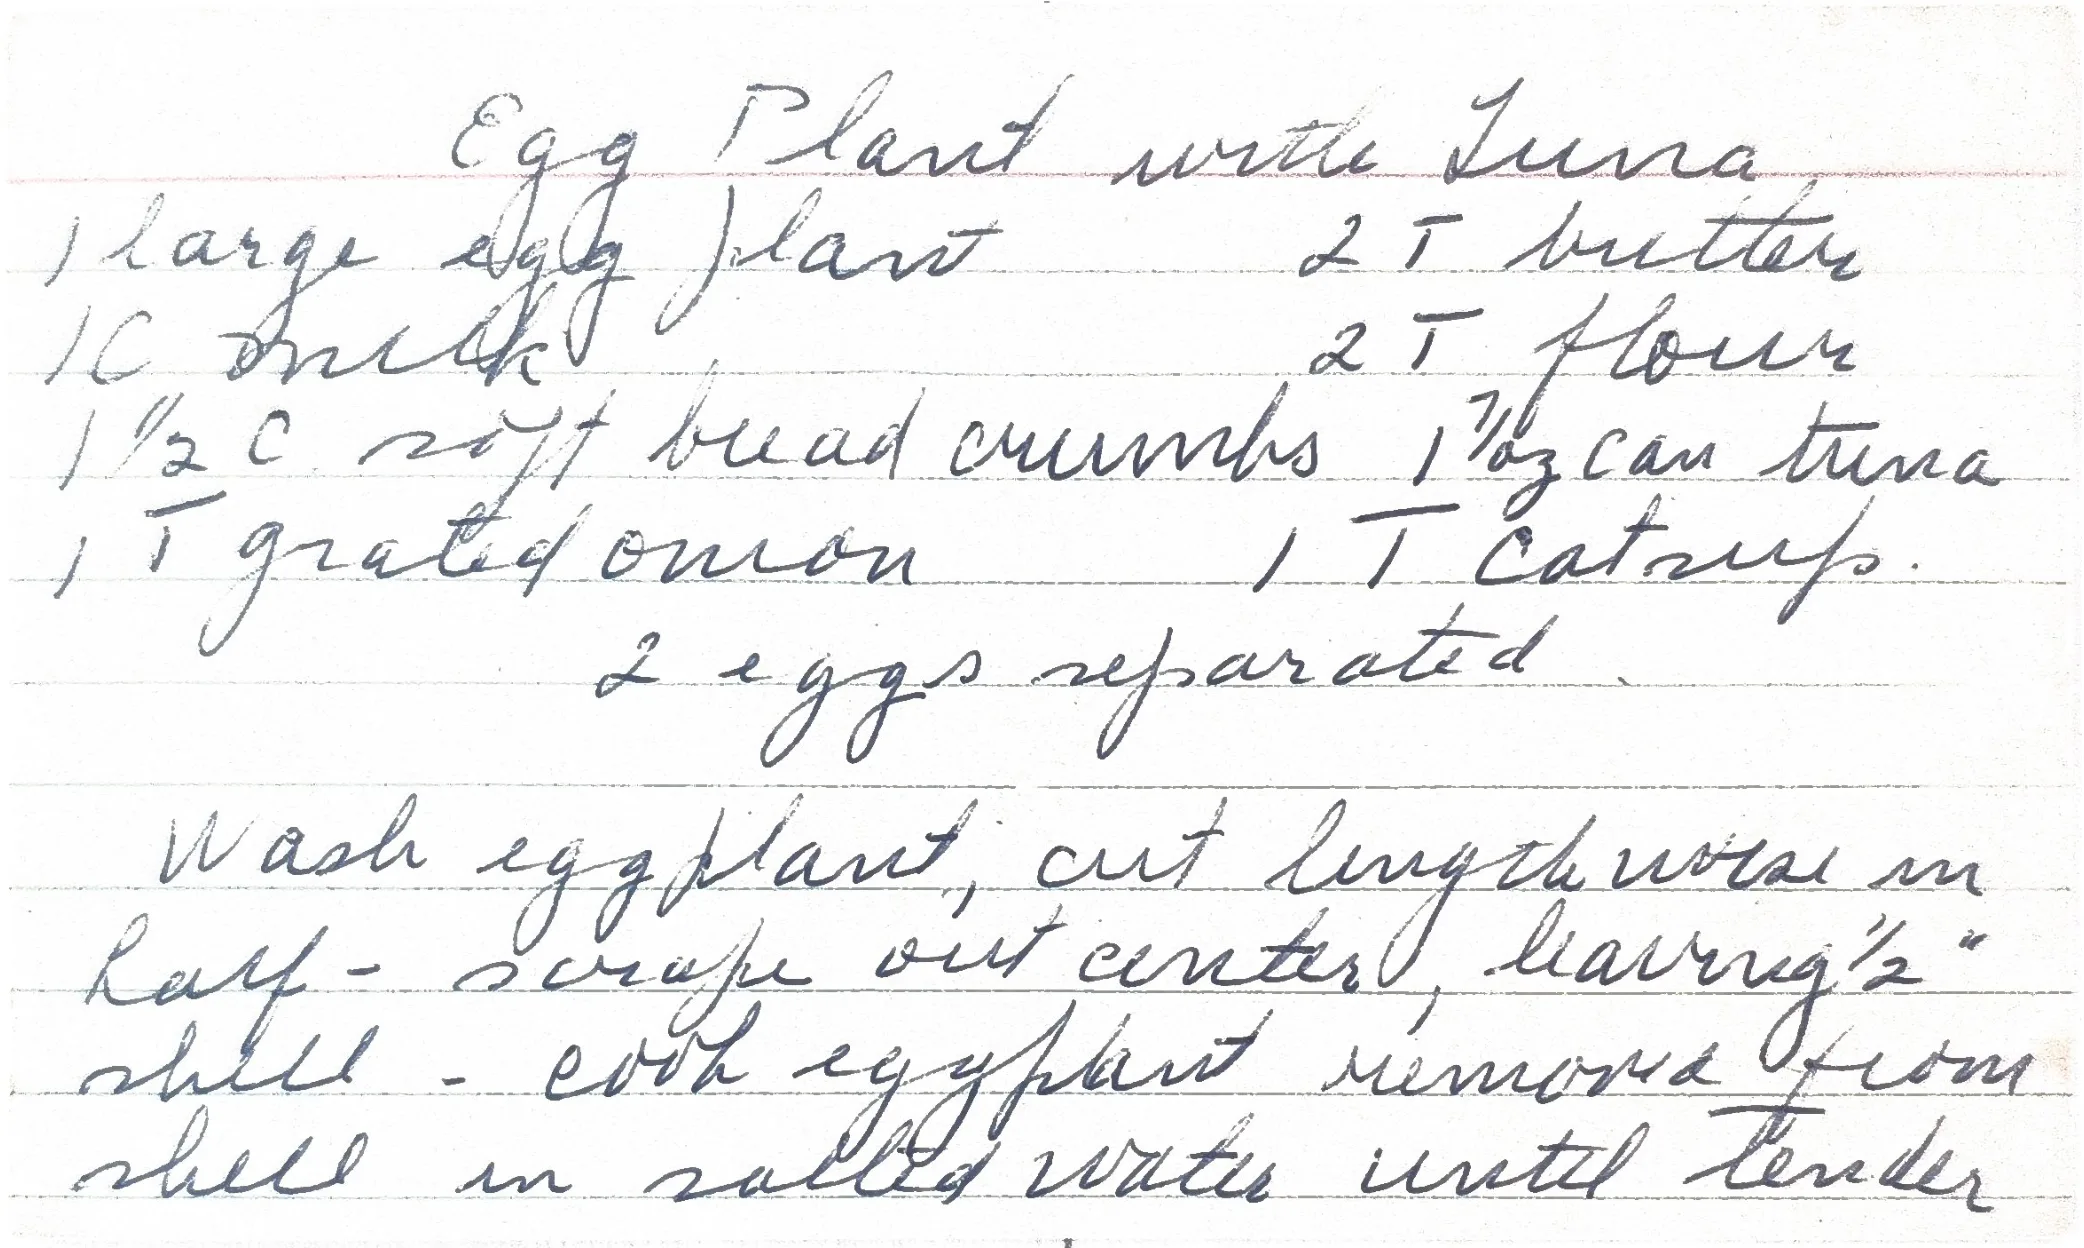 Egg Plant with Tuna
1 large egg plant 2 T butter
1 C milk 2 T flour
1 1/2 C. soft bread crumbs 1 7/oz can tuna
1 T grated onion 1 T catsup.
2 eggs separated.
Wash eggplant, cut lengthwise in
half - scrape out center, leaving 1/2"
shell - cook eggplant removed from
shell in salted water until tender